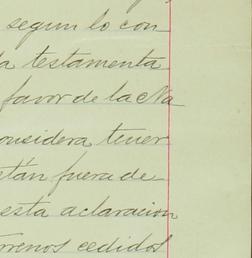 segun lo con
la testamenta
favor de la Na
considera tener
etán fuera de
esta aclaracion
rrenos cedidos